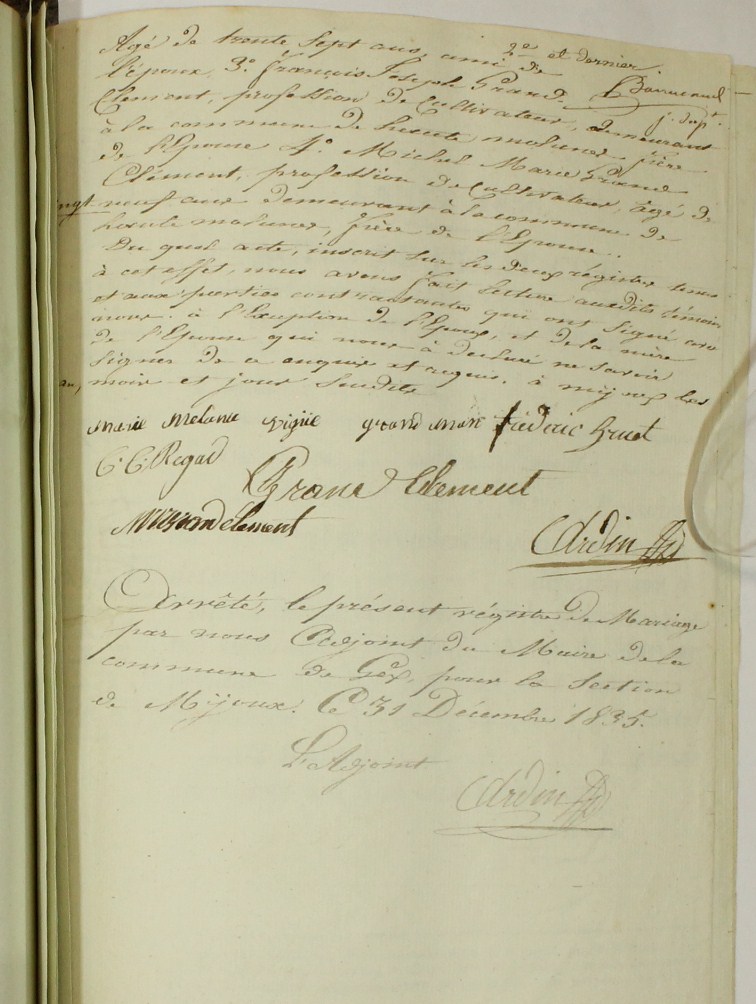 2e et dernier
Agé de trente sept ans, ami de
l'époux, 3o. françois Joseph Grand
j. Sup.t
Clement, profession de Cultivateur, demeurant
à la commune de haute molunes, frère
de l'Epouse 4o. Michel Marie Grand
Clément, profession de Cultivateur, âgé de
vingt neuf ans demeurant à la commune de
haute molunes, frère de l'Epouse..
Du quel acte, inscrit sur les deux régistres tenus
à cet effet, nous avons fait lecture auxdits témoins
et aux parties contractantes qui ont signé avec
nous. à l'Exception de l'Epoux, et de la mère
de l'Epouse qui nous à déclaré ne savoir
signer de ce enquis et requis. à mijoux les
an, mois et jour susdits
marie melanie vigüe grand mari frédéric Gruet
C. C. Regad
Grand Clement
MM grand clement
Ardin
Arrêté, le présent régistre de Mariage
par nous Adjoint du Maire de la
commune de Gex, pour la Section
de Mijoux. Ce 31 Décembre 1835.
L'Adjoint
Ardin